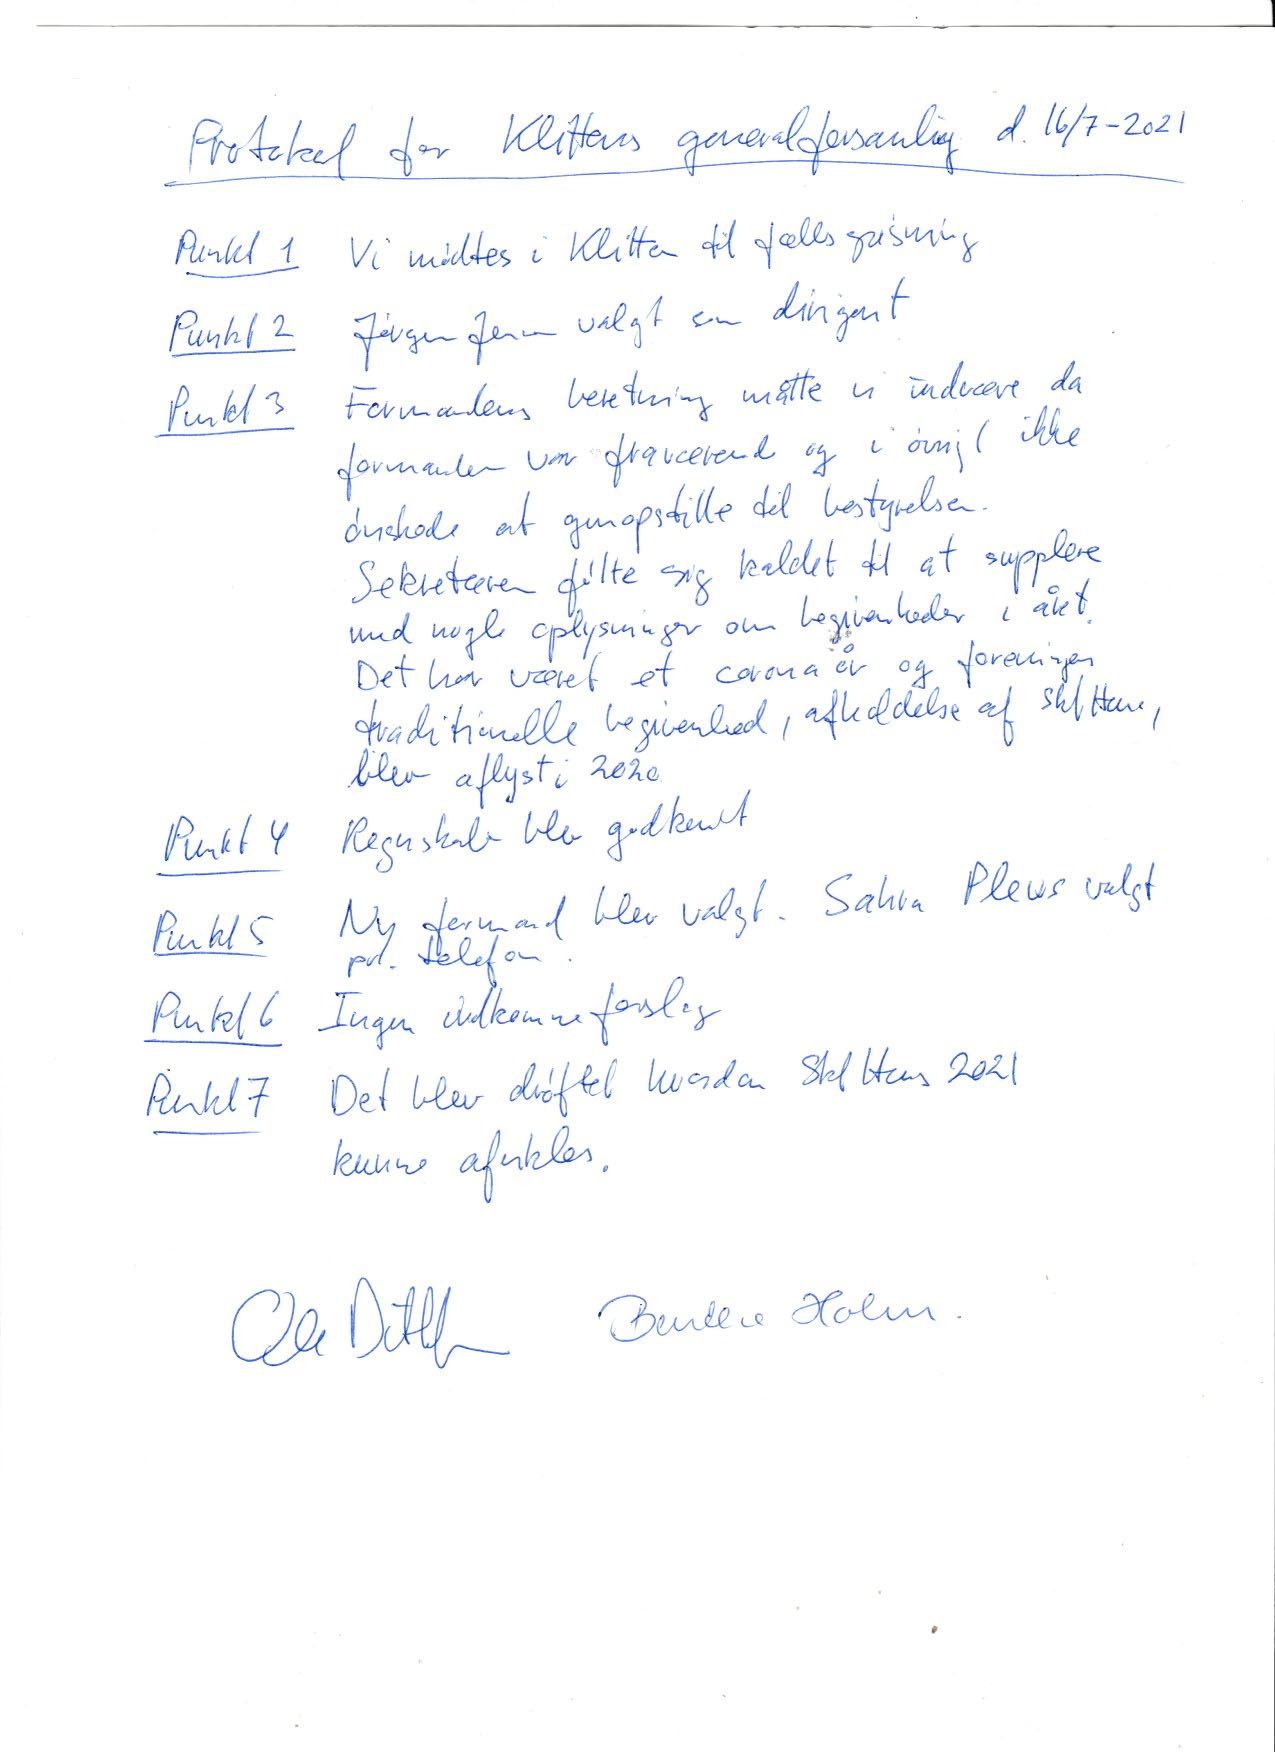 Protokol for Klittens generalforsamling d. 16/7-2021
Punkt 1 Vi mødtes i Klitten til fællesspisning
Punkt 2 Jørgen Jensen valgt som dirigent
Punkt 3 Formandens beretning måtte vi undvære da
formanden var fraværende og i øvrigt ikke
ønskede at genopstille til bestyrelsen.
Sekretæren følte sig kaldet til at supplere
med nogle oplysninger om begivenheder i året.
Det har været et corona år og foreningens
traditionelle begivenhed, afholdelse af
blev aflyst i 2020
Punkt 4 Regnskabet blev godkendt
Punkt 5 Ny formand blev valgt. Plews valgt
pr. telefon.
Punkt 6 Ingen indkomne forslag
Punkt 7 Det blev drøftet hvordan 2021
kunne afvikles.
Ole Holm.